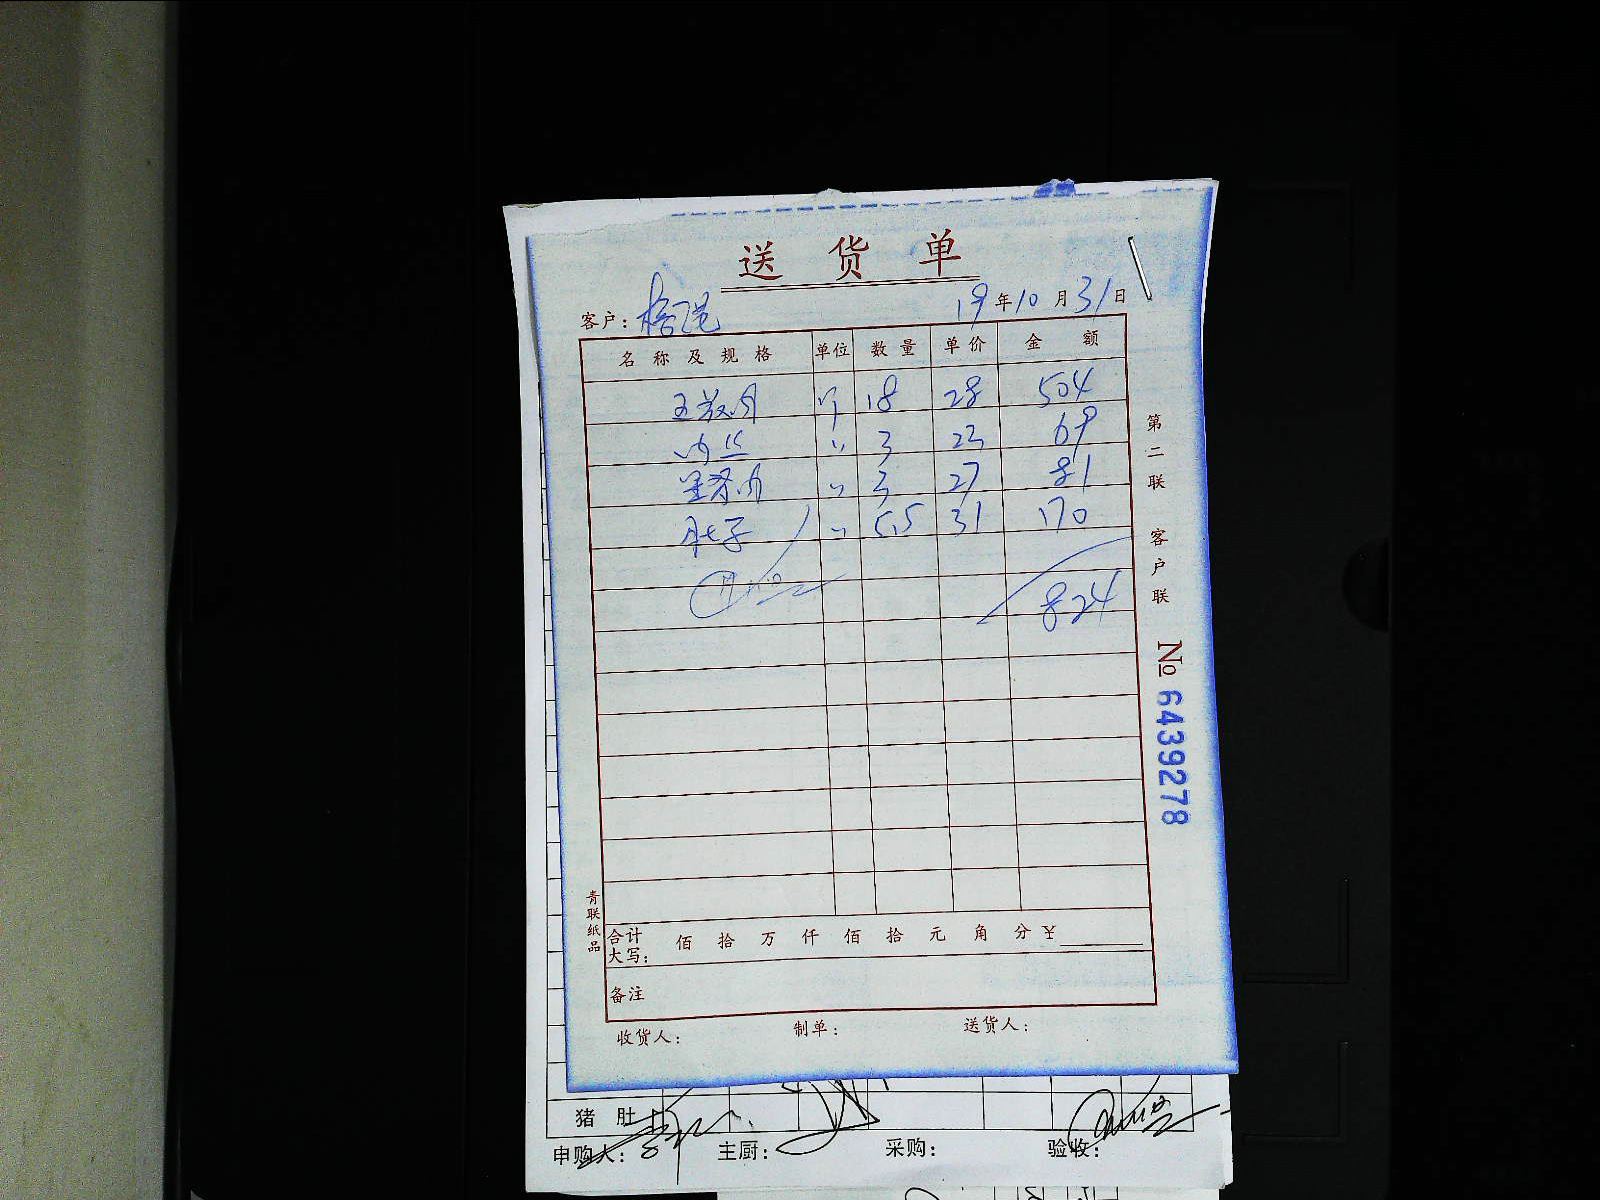 送 货 单
客户: 19年10月31日
名称及规格 单位 数量 单价 金额
五花肉 斤 18 28 504
肉丝 〃 3 23 69
里脊肉 〃 3 27 81
肚子 〃 5.5 31 170
824
第二联 客户联
№ 6439278
青联纸品
合计大写: 佰 拾 万 仟 佰 拾 元 角 分 ¥
备注
收货人: 制单: 送货人:
猪肚
申购人: 主厨: 采购: 验收: